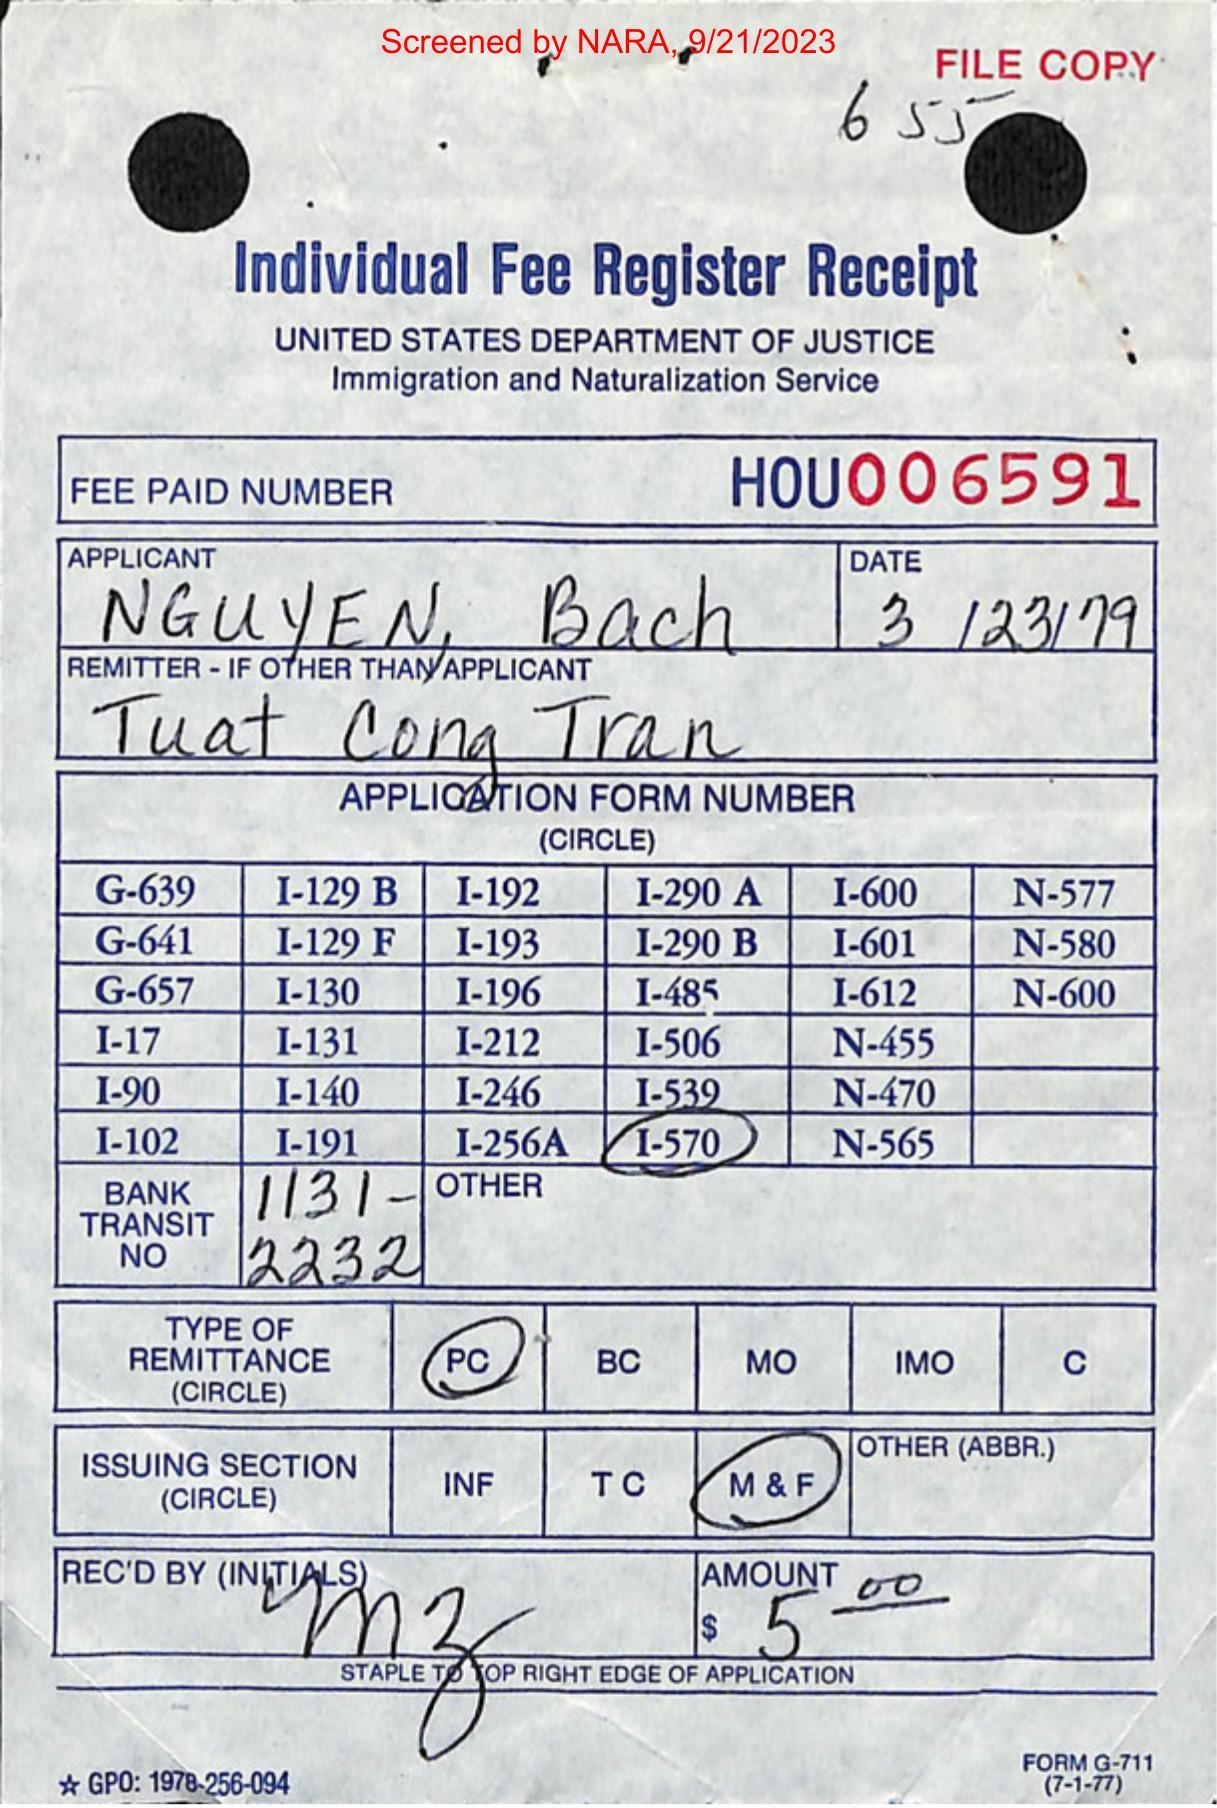 Screened by NARA, 9/21/2023
FILE COPY
655
Individual Fee Register Receipt
UNITED STATES DEPARTMENT OF JUSTICE
Immigration and Naturalization Service
FEE PAID NUMBER HOU006591
APPLICANT DATE
NGUYEN, Bach 3/23/79
REMITTER - IF OTHER THAN APPLICANT
Tuat Cong Tran
APPLICATION FORM NUMBER
(CIRCLE)
G-639 I-129 B I-192 I-290 A I-600 N-577
G-641 I-129 F I-193 I-290 B I-601 N-580
G-657 I-130 I-196 I-485 I-612 N-600
I-17 I-131 I-212 I-506 N-455
I-90 I-140 I-246 I-539 N-470
I-102 I-191 I-256A I-570 N-565
BANK TRANSIT NO 1131-
2232
OTHER
TYPE OF
REMITTANCE PC BC MO IMO C
(CIRCLE)
ISSUING SECTION INF T C M & F OTHER (ABBR.)
(CIRCLE)
REC'D BY (INITIALS) AMOUNT
mz $ 5 00
STAPLE TO TOP RIGHT EDGE OF APPLICATION
☆ GPO: 1978-256-094
FORM G-711
(7-1-77)